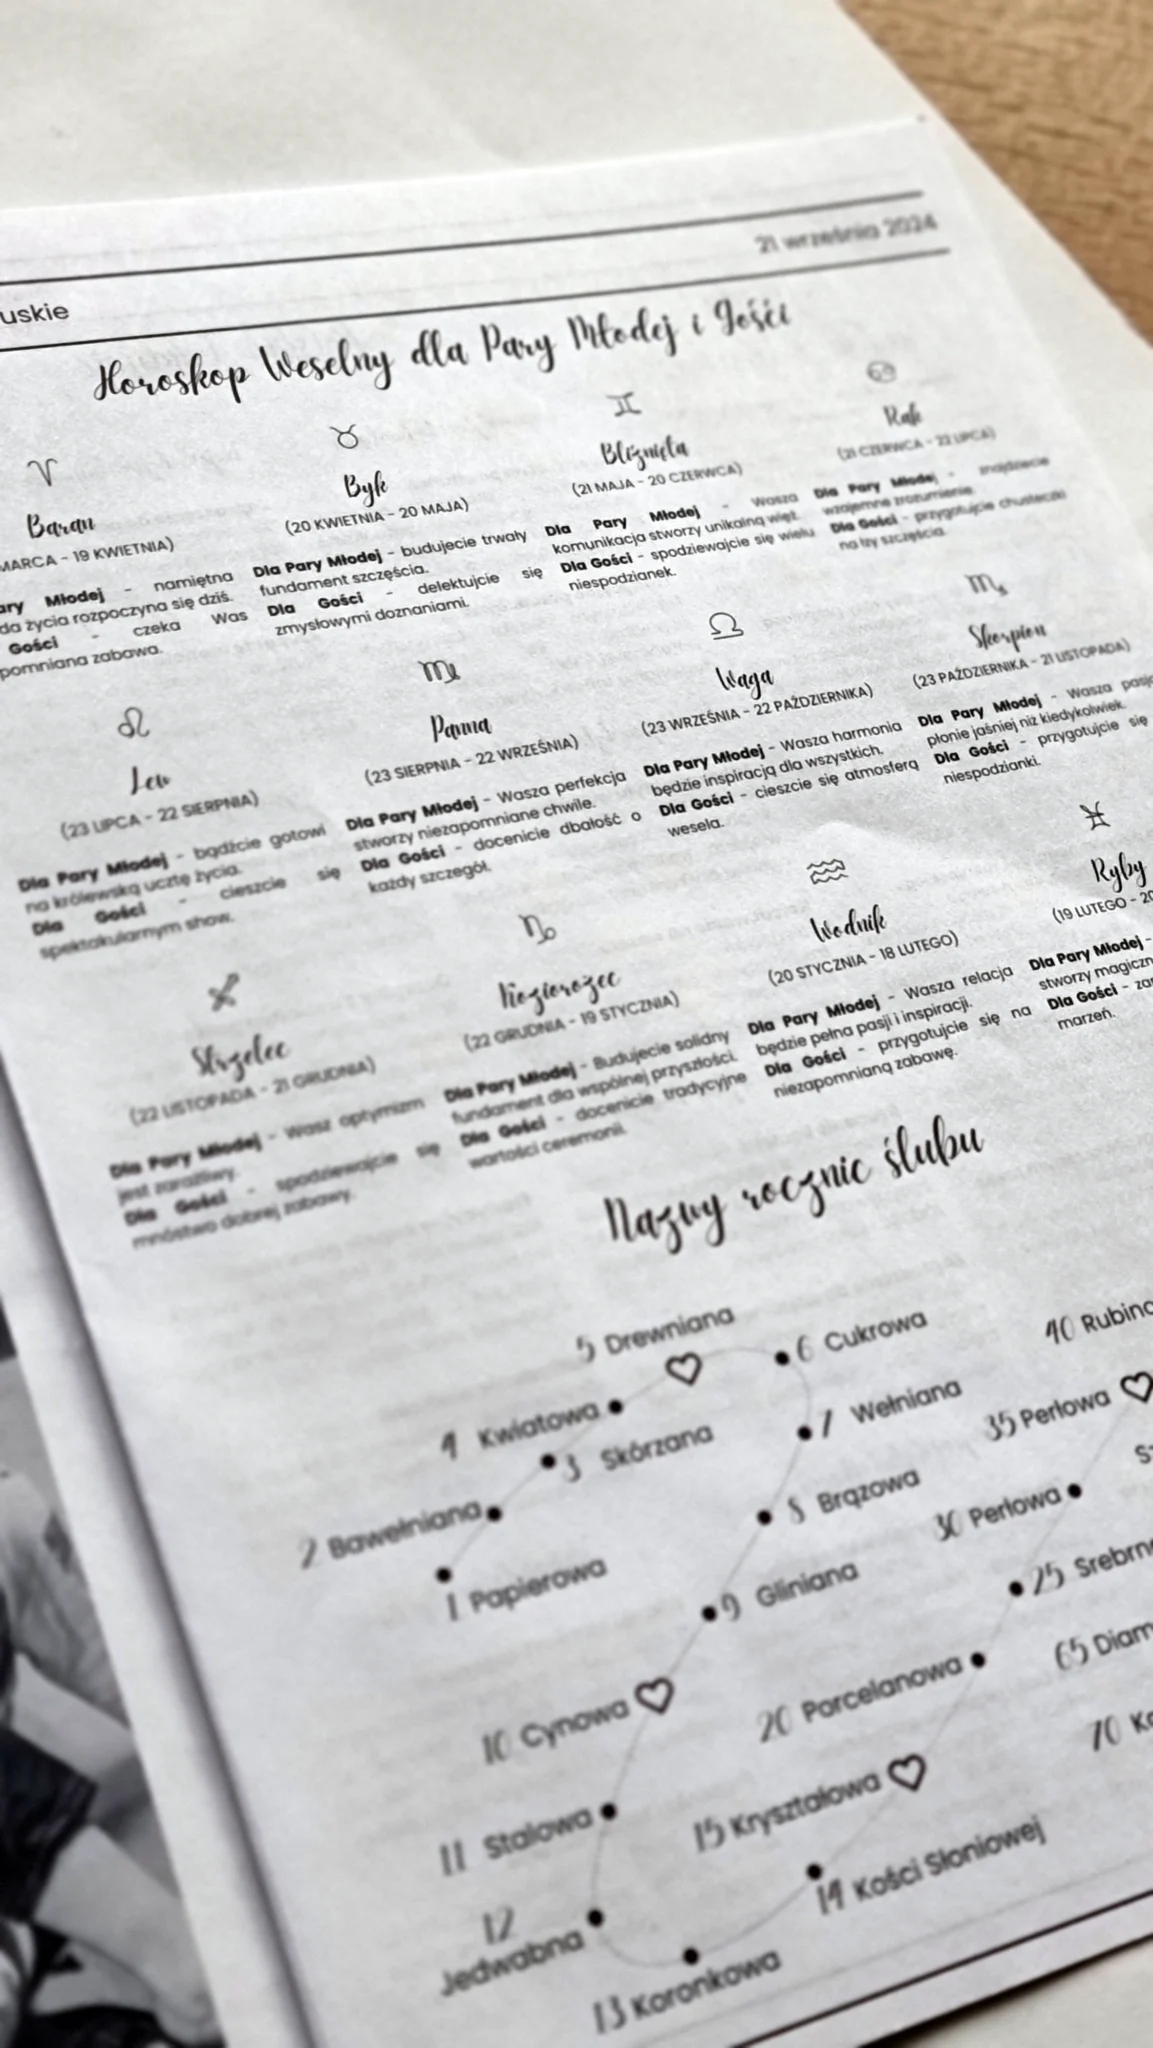 21 września 2024
uskie
Horoskop Weselny dla Pary Młodej i Gości
Baran
MARCA - 19 KWIETNIA)
ary Młodej - namiętna
da życia rozpoczyna się dziś.
Gości - czeka Was
pomniana zabawa.
Byk
(20 KWIETNIA - 20 MAJA)
Dla Pary Młodej - budujecie trwały
fundament szczęścia.
Dla Gości - delektujcie się
zmysłowymi doznaniami.
Bliźnięta
(21 MAJA - 20 CZERWCA)
Dla Pary Młodej - Wasza
komunikacja stworzy unikalną więź.
Dla Gości - spodziewajcie się wielu
niespodzianek.
Rak
(21 CZERWCA - 22 LIPCA)
Dla Pary Młodej - znajdziecie
wzajemne zrozumienie.
Dla Gości - przygotujcie chusteczki
na łzy szczęścia.
Lew
(23 LIPCA - 22 SIERPNIA)
Dla Pary Młodej - bądźcie gotowi
na królewską ucztę życia.
Dla Gości - cieszcie się
spektakularnym show.
Panna
(23 SIERPNIA - 22 WRZEŚNIA)
Dla Pary Młodej - Wasza perfekcja
stworzy niezapomniane chwile.
Dla Gości - docenicie dbałość o
każdy szczegół.
Waga
(23 WRZEŚNIA - 22 PAŹDZIERNIKA)
Dla Pary Młodej - Wasza harmonia
będzie inspiracją dla wszystkich.
Dla Gości - cieszcie się atmosferą
wesela.
Skorpion
(23 PAŹDZIERNIKA - 21 LISTOPADA)
Dla Pary Młodej - Wasza pasja
płonie jaśniej niż kiedykolwiek.
Dla Gości - przygotujcie się
niespodzianki.
Strzelec
(22 LISTOPADA - 21 GRUDNIA)
Dla Pary Młodej - Wasz optymizm
jest zaraźliwy.
Dla Gości - spodziewajcie się
mnóstwo dobrej zabawy.
Koziorożec
(22 GRUDNIA - 19 STYCZNIA)
Dla Pary Młodej - Budujecie solidny
fundament dla wspólnej przyszłości.
Dla Gości - docenicie tradycyjne
wartości ceremonii.
Wodnik
(20 STYCZNIA - 18 LUTEGO)
Dla Pary Młodej - Wasza relacja
będzie pełna pasji i inspiracji.
Dla Gości - przygotujcie się na
niezapomnianą zabawę.
Ryby
(19 LUTEGO - 20
Dla Pary Młodej -
stworzy magiczn
Dla Gości - za
marzeń.
Nazwy rocznic ślubu
5 Drewniana
6 Cukrowa
40 Rubino
4 Kwiatowa
7 Wełniana
35 Perłowa
3 Skórzana
2 Bawełniana
8 Brązowa
30 Perłowa
1 Papierowa
9 Gliniana
25 Srebrn
10 Cynowa
20 Porcelanowa
65 Diam
70 Ka
11 Stalowa
15 Kryształowa
14 Kości Słoniowej
12
Jedwabna
13 Koronkowa